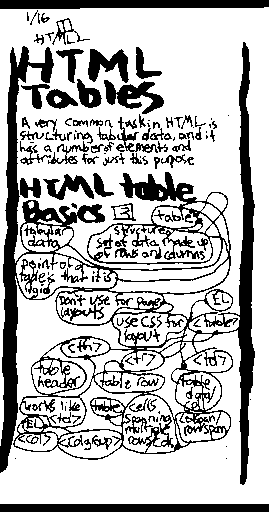 1/16
HTML
HTML
Tables
A very common task in HTML is
structuring tabular data, and it
has a number of elements and
attributes for just this purpose
HTML table
Basics 3
tables
tabular
data
structured
set of data made up
of rows and columns
point of a
table is that it is
rigid
Don't use for page
layouts
EL
use CSS for
layout
<table>
<th>
<tr>
<td>
table
header
table row
table
data/
works like
<td>
table
cells
spanning
multiple
rows/cols
colspan/
rowspan
EL
<col>
<colgroup>